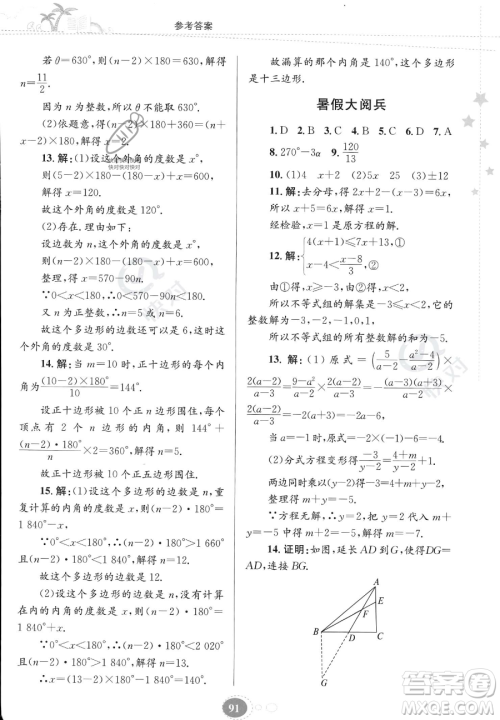 参考答案
若θ=630°,则(n-2)×180=630,解得
n=11/2.
因为n为整数,所以θ不能取630°.
(2)依题意,得(n-2)×180+360=(n+x-2)×180,解得x=2.
13.解:(1)设这个外角的度数是x°,
则(5-2)×180-(180-x)+x=600,
解得x=120.
故这个外角的度数是120°.
(2)存在.理由如下:
设边数为n,这个外角的度数是x°,则
(n-2)×180-(180-x)+x=600,
整理,得x=570-90n.
∵0<x<180,∴0<570-90n<180.
又n为正整数,∴n=5或n=6.
故这个多边形的边数还可以是6,这时
这个外角的度数是30°.
14.解:当m=10时,正十边形的每个内
角为(10-2)×180°/10=144°.
设正十边形被10个正n边形围住,每
顶点有2个正n边形,则144°+
(n-2)·180°/n×2=360°,解得n=5.
故正十边形被10个正五边形围住.
15.解:(1)设这个多边形的边数是n,重
复计算的内角的度数是x,则(n-2)·180°=
1 840°-x.
∵0°<x<180°,∴(n-2)·180°>1 660°
且(n-2)·180°<1 840°,解得n=12.
故这个多边形的边数是12.
(2)设这个多边形的边数是n,没有计算
在内的内角的度数是x,则(n-2)·180°=
1 840°+x.
∵0°<x<180°,∴(n-2)·180°<2 020°
且(n-2)·180°>1 840°,解得n=13.
∴x=(13-2)×180°-1 840°=140°.
故漏算的这个内角是140°,这个多边形
是十三边形.
暑假大阅兵
1.D 2.B 3.C 4.B 5.D 6.D 7.A
8.270°-3α 9.120/13
10.(1)4 +2x (2)5x 25 (3)±12
11.解:去分母,得2+2x-4=x+6.
解得x=8.
经检验,x=8是原方程的根.
12.解:{4(x+1)≤7x+13,①
x-4<(x-8)/3,②
由①②得-3≤x<2.
所以不等式组的解集是-3≤x<2.
所以不等式组的所有整数解的和为-5.
13.解:(1)原式=(5/(a-2)-(a²-4)/(a-2))×
2(a-2)/(a-3)=(9-a²)/(a-2)×2(a-2)/(a-3)=-(a-3)(a+3)/(a-2)×
2(a-2)/(a-3)=-2(a+3)=-2a-6.
当a=-1时,原式=-4.
(2)分式方程变形得-3/(y-2)=(4+m)/(y-2)+1.
两边同时乘(y-2)得-3=4+m+y-2.
整理得y=-5-m.
∵方程无解,∴y=2,∴m=-7.
14.证明:如图,延长AD到G,使得DG=
AD,连接BG.
A
E
B
D
C
G
91